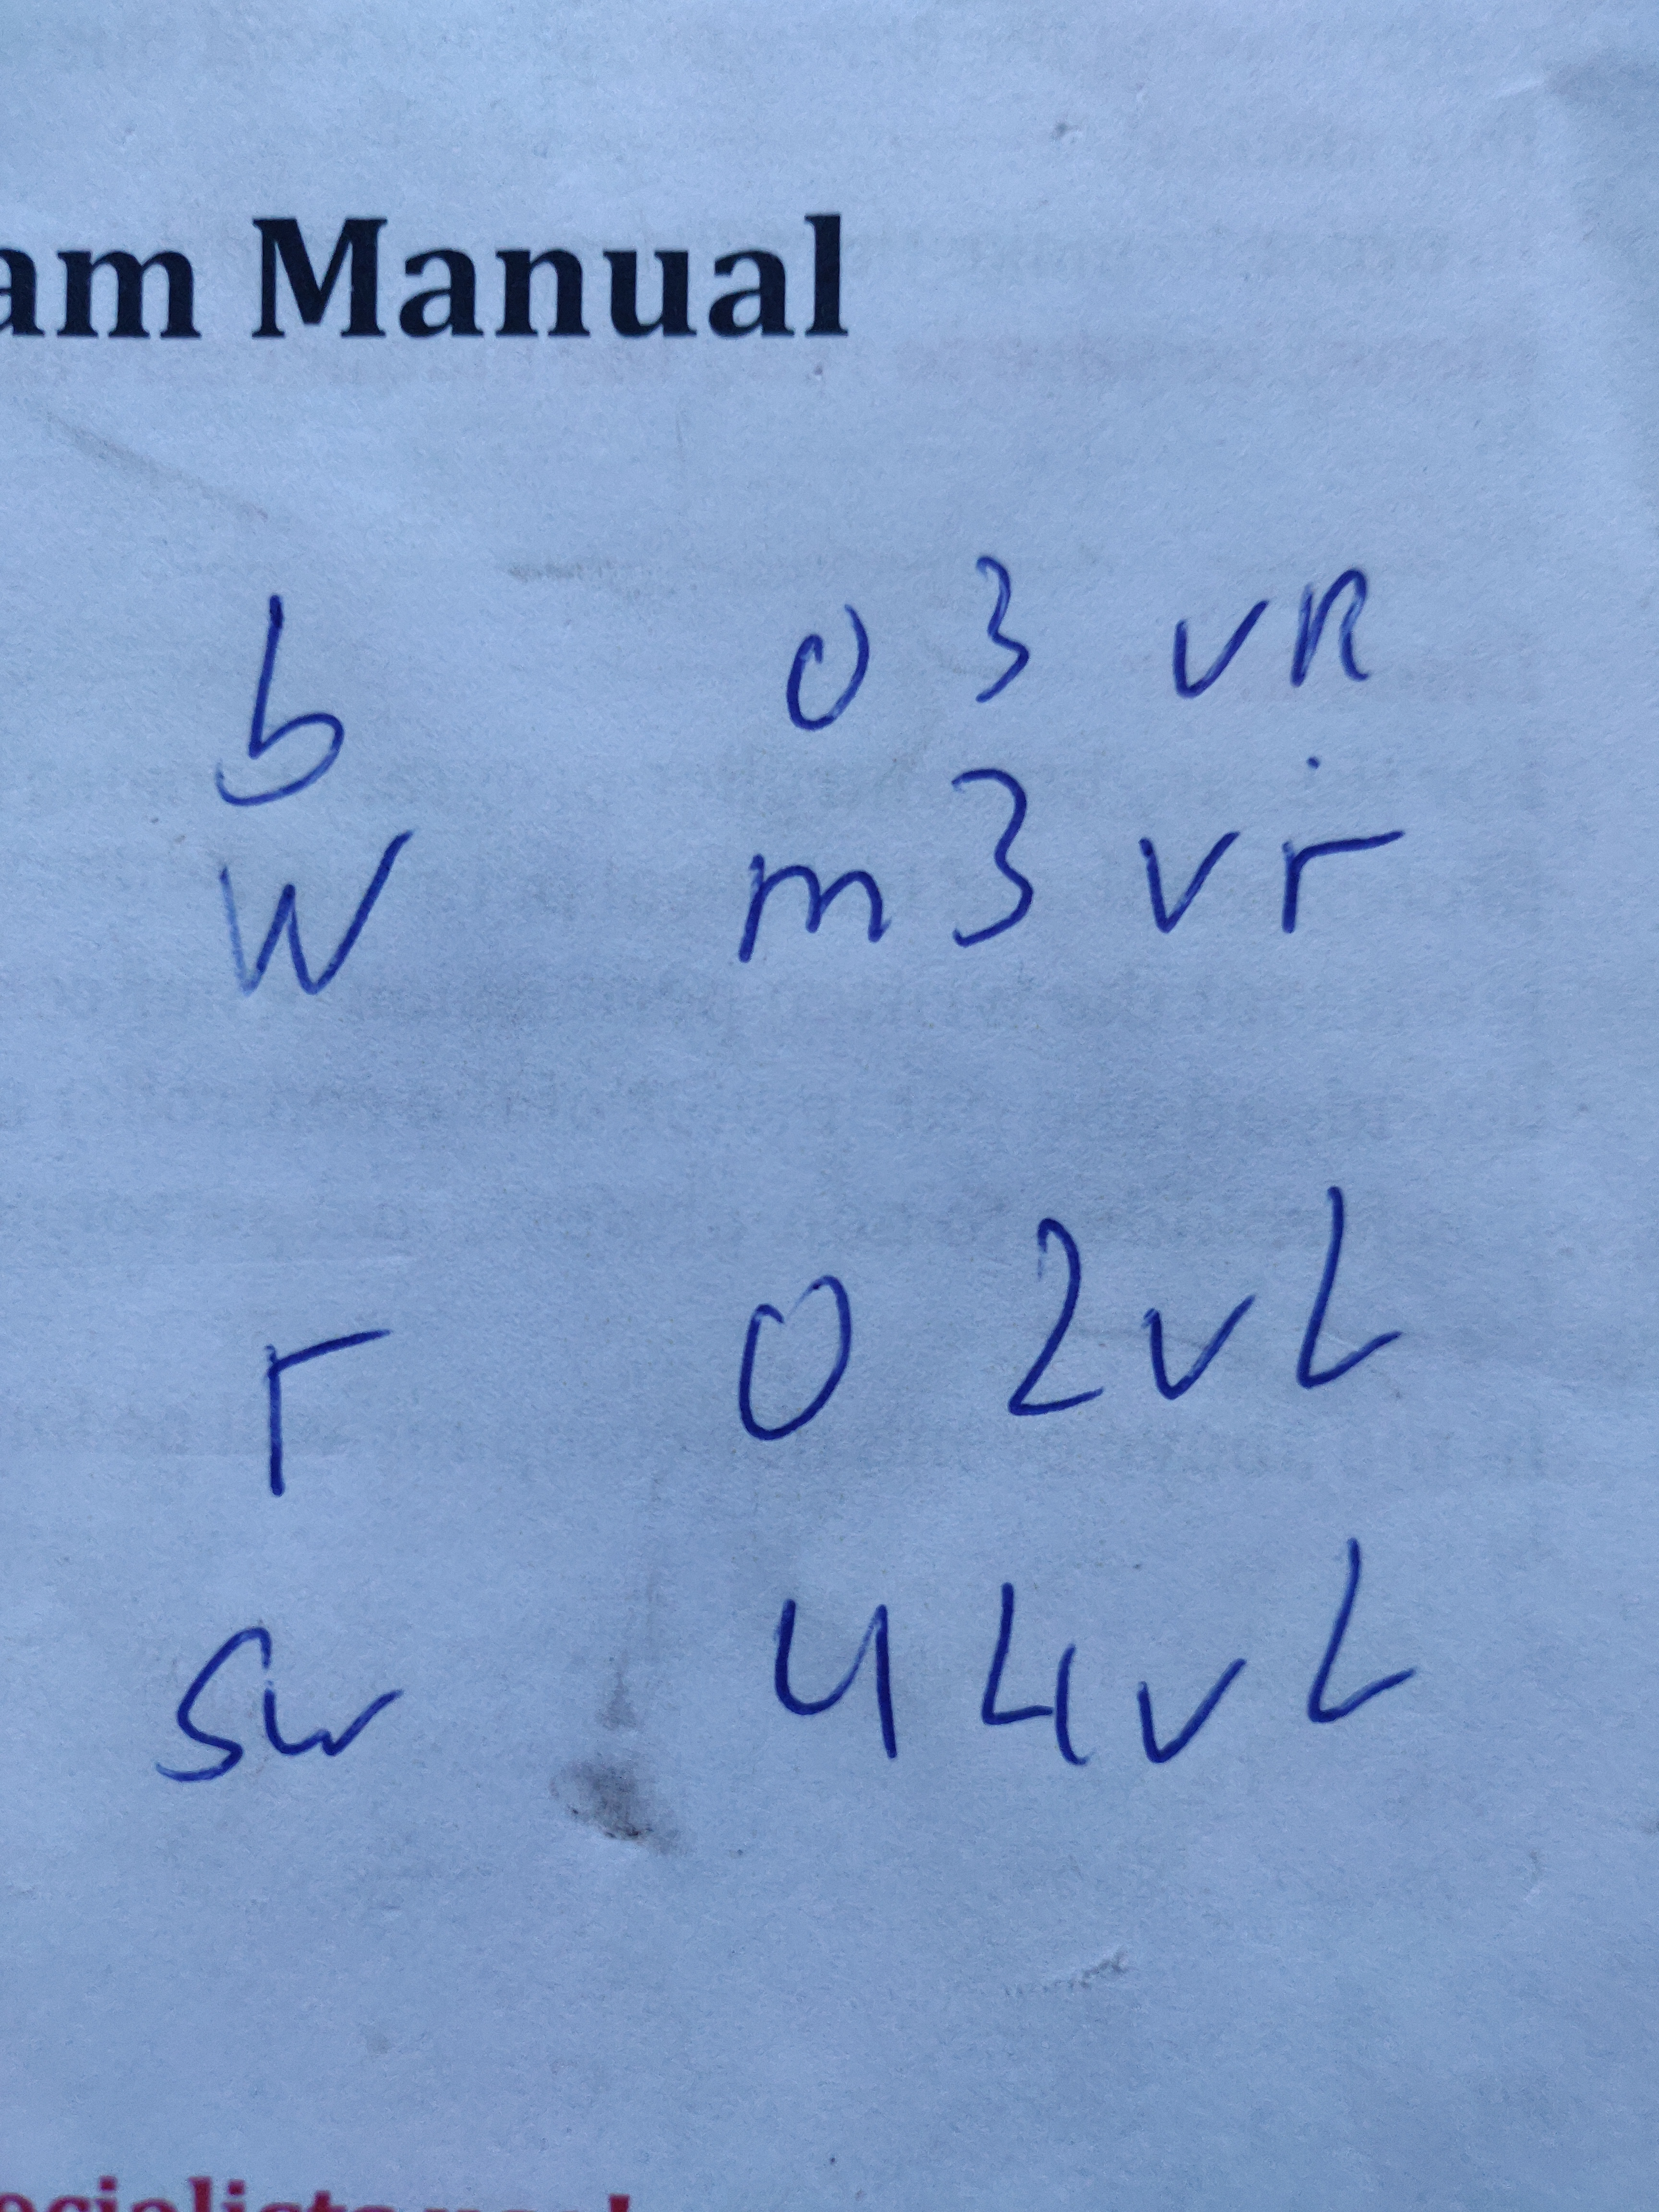 am Manual
b 0 3 v R
W m 3 v r
r 0 2 v L
Sw 4 4 v L